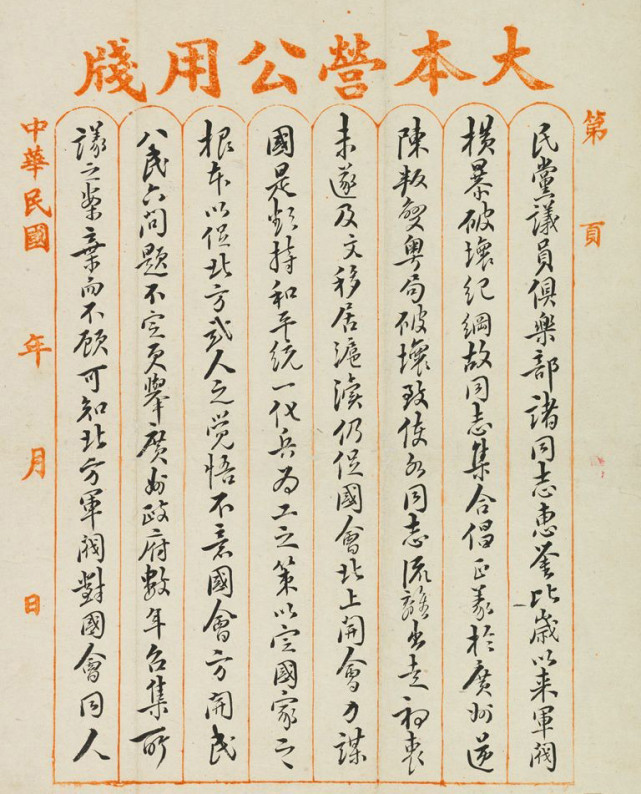 大本營公用牋
第 頁
民黨議員俱樂部諸同志惠鑒比歲以来軍閥
橫暴破壞紀綱故同志集合倡正義於廣州逆
陳叛變粵局破壞致使各同志流離出走初衷
未遂及文移居滬瀆仍促國會北上開會力謀
國是持和平統一化兵為工之策以定國家之
根本以促北方武人之覺悟不意國會方開民
八民六問題不定更舉廣州政府數年召集所
議之案棄而不顧可知北方軍閥對國會同人
中華民國 年 月 日